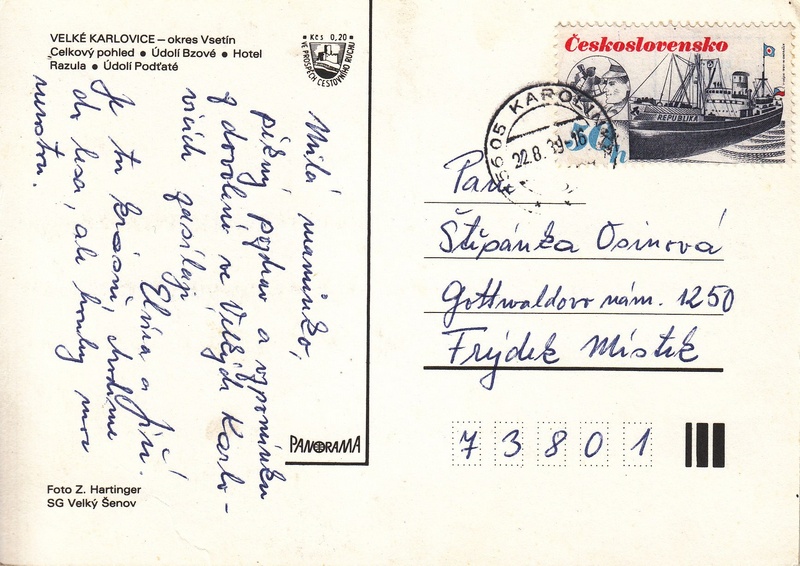 VELKÉ KARLOVICE – okres Vsetín
Celkový pohled • Údolí Bzové • Hotel
Razula • Údolí Podťaté
Kčs 0,20
VE PROSPĚCH CESTOVNÍHO RUCHU
Milá maminko,
pěkný pozdrav a vzpomínku
z dovolené ve Velkých Karlo-
vicích zasílají
Elvíra a Jiří.
Je tu krásně, chodíme
do lesa, ale houby moc
nerostou.
PANORAMA
Foto Z. Hartinger
SG Velký Šenov
Československo
REPUBLIKA
50h
75605 KAROLINKA
22.8.89-16
Paní
Štěpánka Osinová
Gottwaldovo nám. 1250
Frýdek Místek
73801